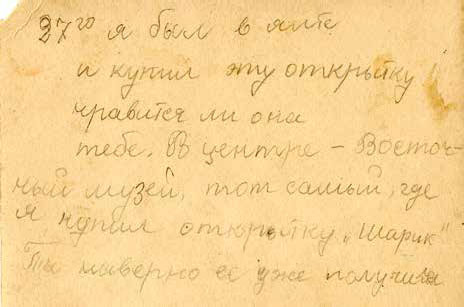 27го я был в ялте
и купил эту открытку
нравится ли она
тебе. В центре – Восточ-
ный музей, тот самый, где
я купил открытку „Шарик“
Ты наверно ее уже получила